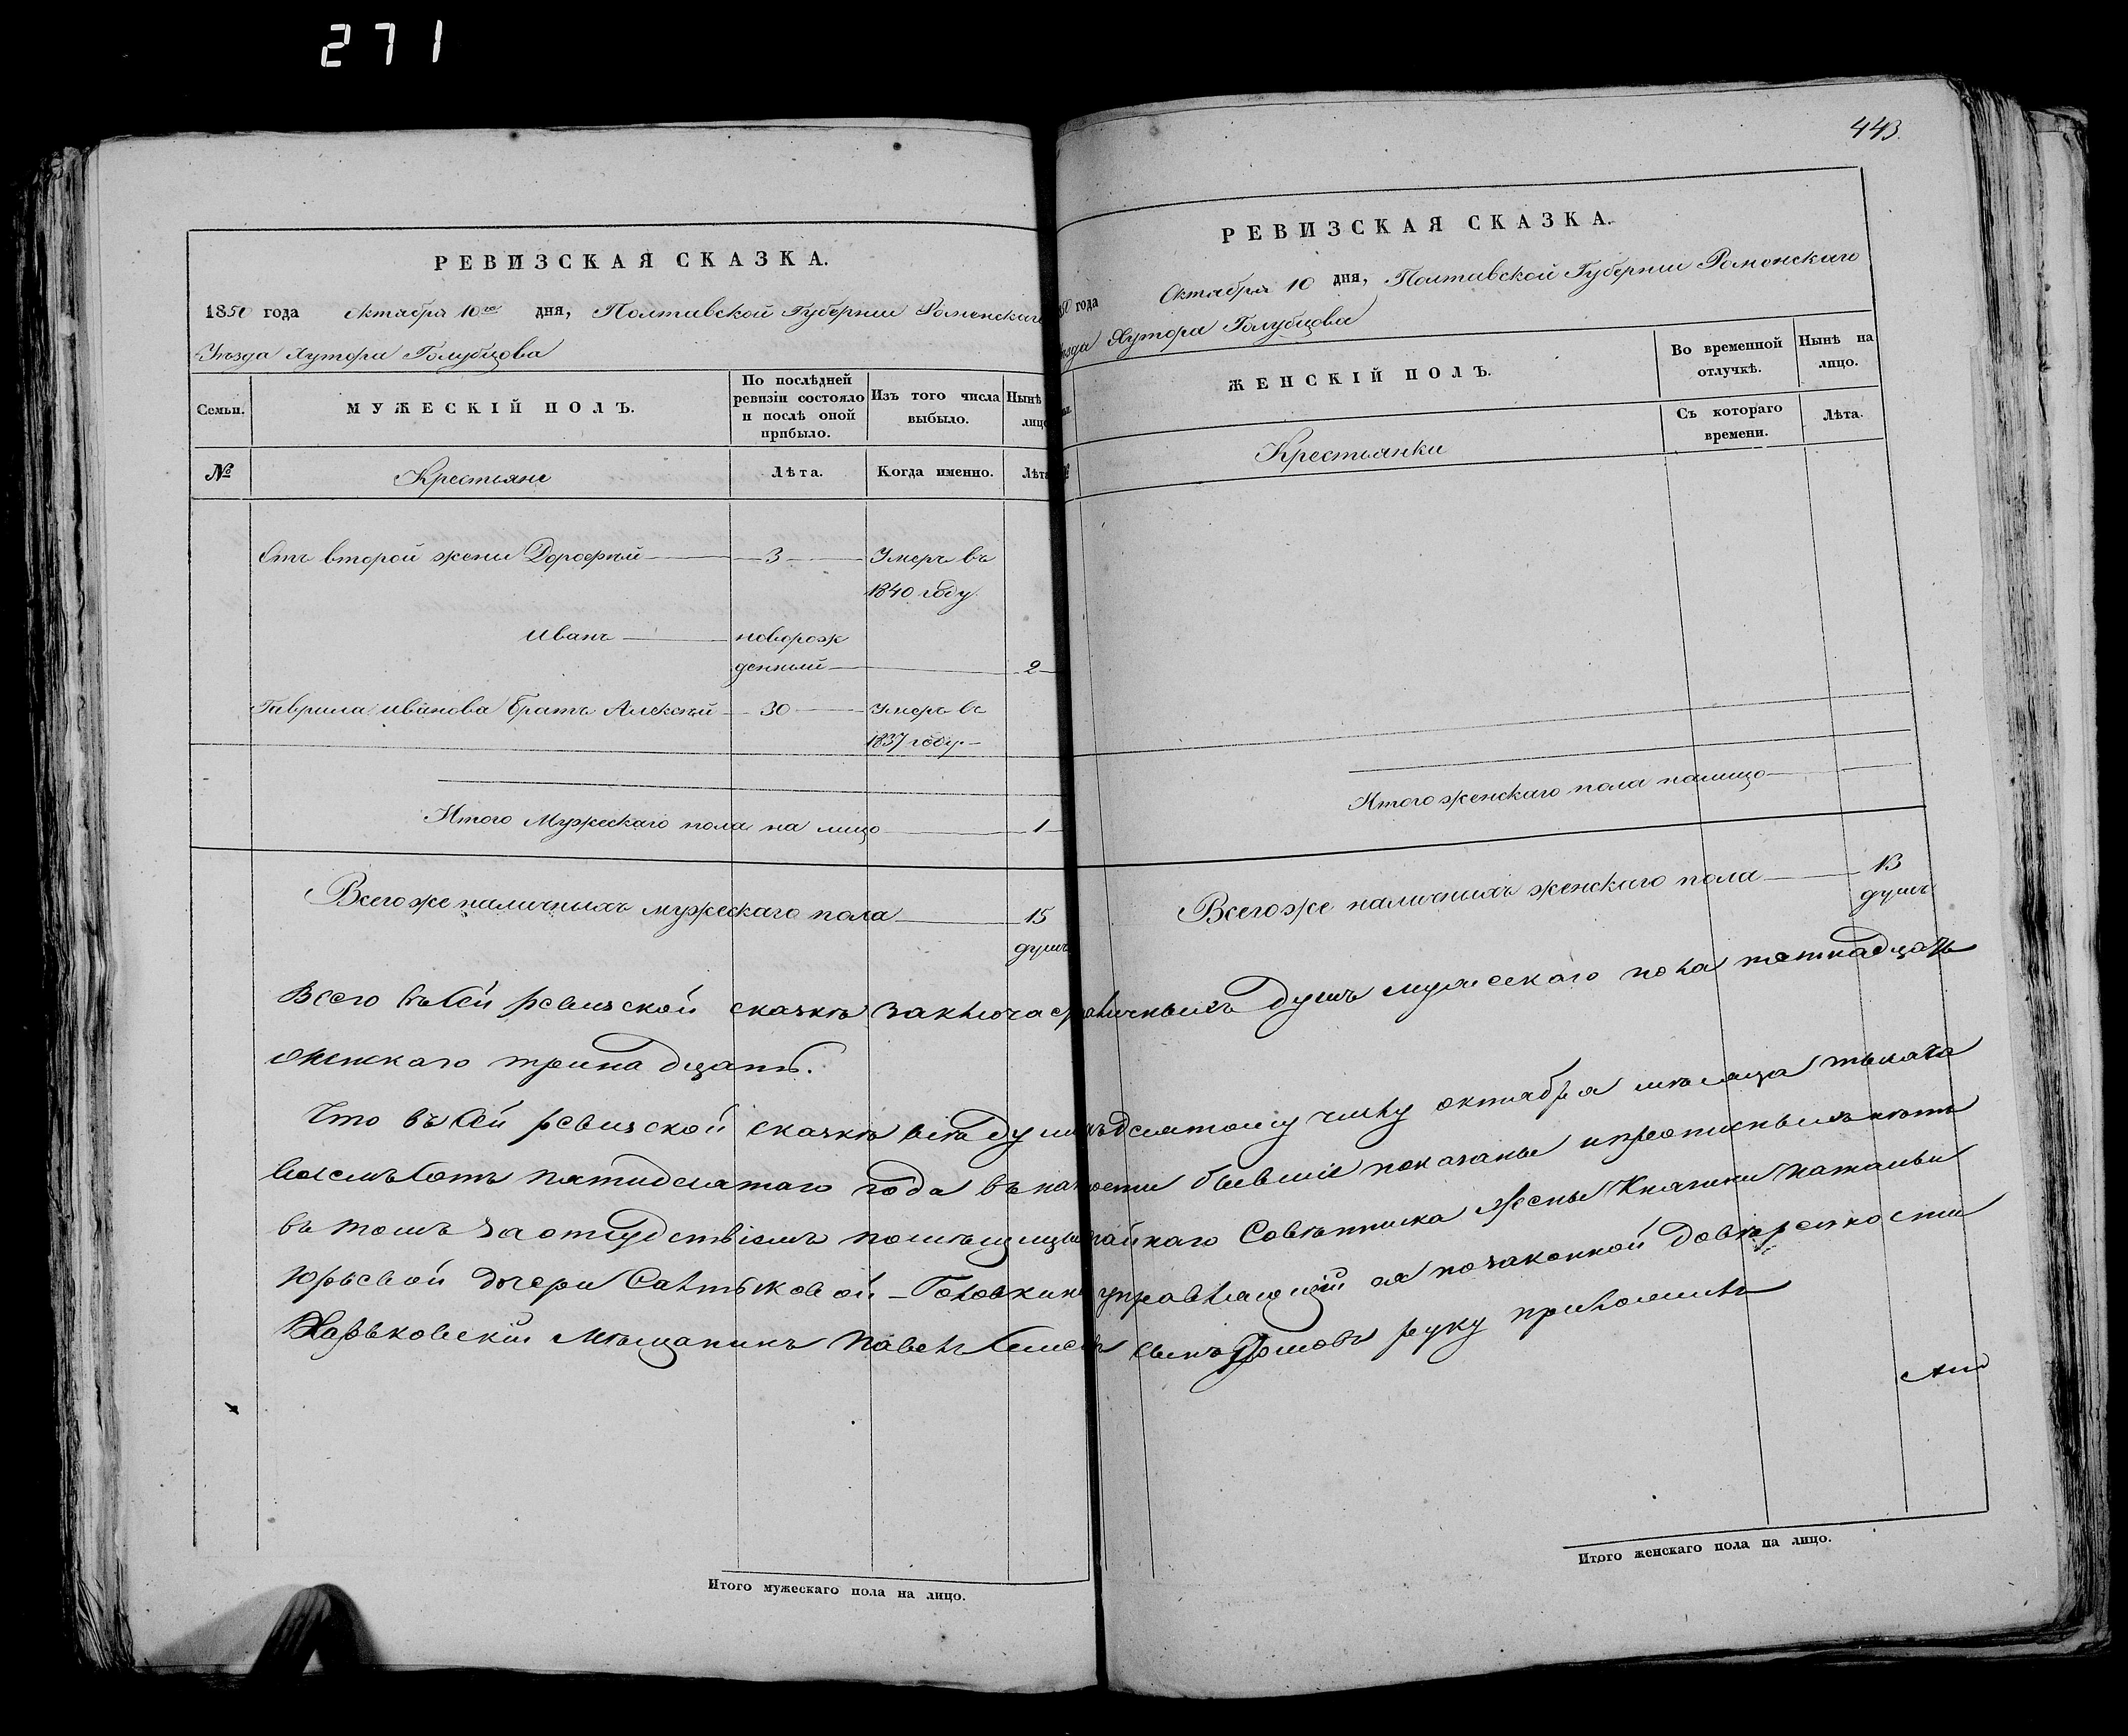 271
РЕВИЗСКАЯ СКАЗКА.
1850 года октября 10го дня, Полтавской Губернии Роменскаго
Уѣзда Хутора Голубцова
Семьи.
МУЖЕСКІЙ ПОЛЪ.
По послѣдней
ревизіи состояло
и послѣ оной
прибыло.
Изъ того числа
выбыло.
Нынѣ
лицо
№
Крестьяне
Лѣта.
Когда именно.
Лѣта
Отъ второй жены Дорофѣй 3 Умеръ въ
1840 году
Иванъ новорож
денный 2
Гаврила Иванова братъ Алексѣй 30 Умеръ въ
1837 году.
Итого Мужескаго пола на лицо 1
Всего же наличныхъ мужескаго пола 15
душъ
443.
РЕВИЗСКАЯ СКАЗКА.
года Октября 10 дня, Полтавской Губернии Роменскаго
Хутора Голубцова
ЖЕНСКІЙ ПОЛЪ.
Во временной
отлучкѣ.
Нынѣ на
лицо.
Крестьянки
Съ котораго
времени.
Лѣта.
Итого женскаго пола налицо
Всего же наличныхъ женскаго пола 13
душъ
Всего въ сей ревизской сказкѣ душъ мужескаго пола пятнадцать
женскаго тринадцать.
Что въ сей ревизской сказкѣ всѣ десятому числу октября мѣсяца тысяча
восемьсотъ пятидесятаго года бывшіе показаны и прописныхъ нѣтъ
въ томъ за отсудствіемъ Совѣтника Жены Княгини Натальи
Юрьевой дочери Салтыковой-Головкиной управляющій ея по законной довѣренности
Харьковскій Мѣщанинъ Павелъ сынъ руку приложилъ
Итого мужескаго пола на лицо.
Итого женскаго пола на лицо.